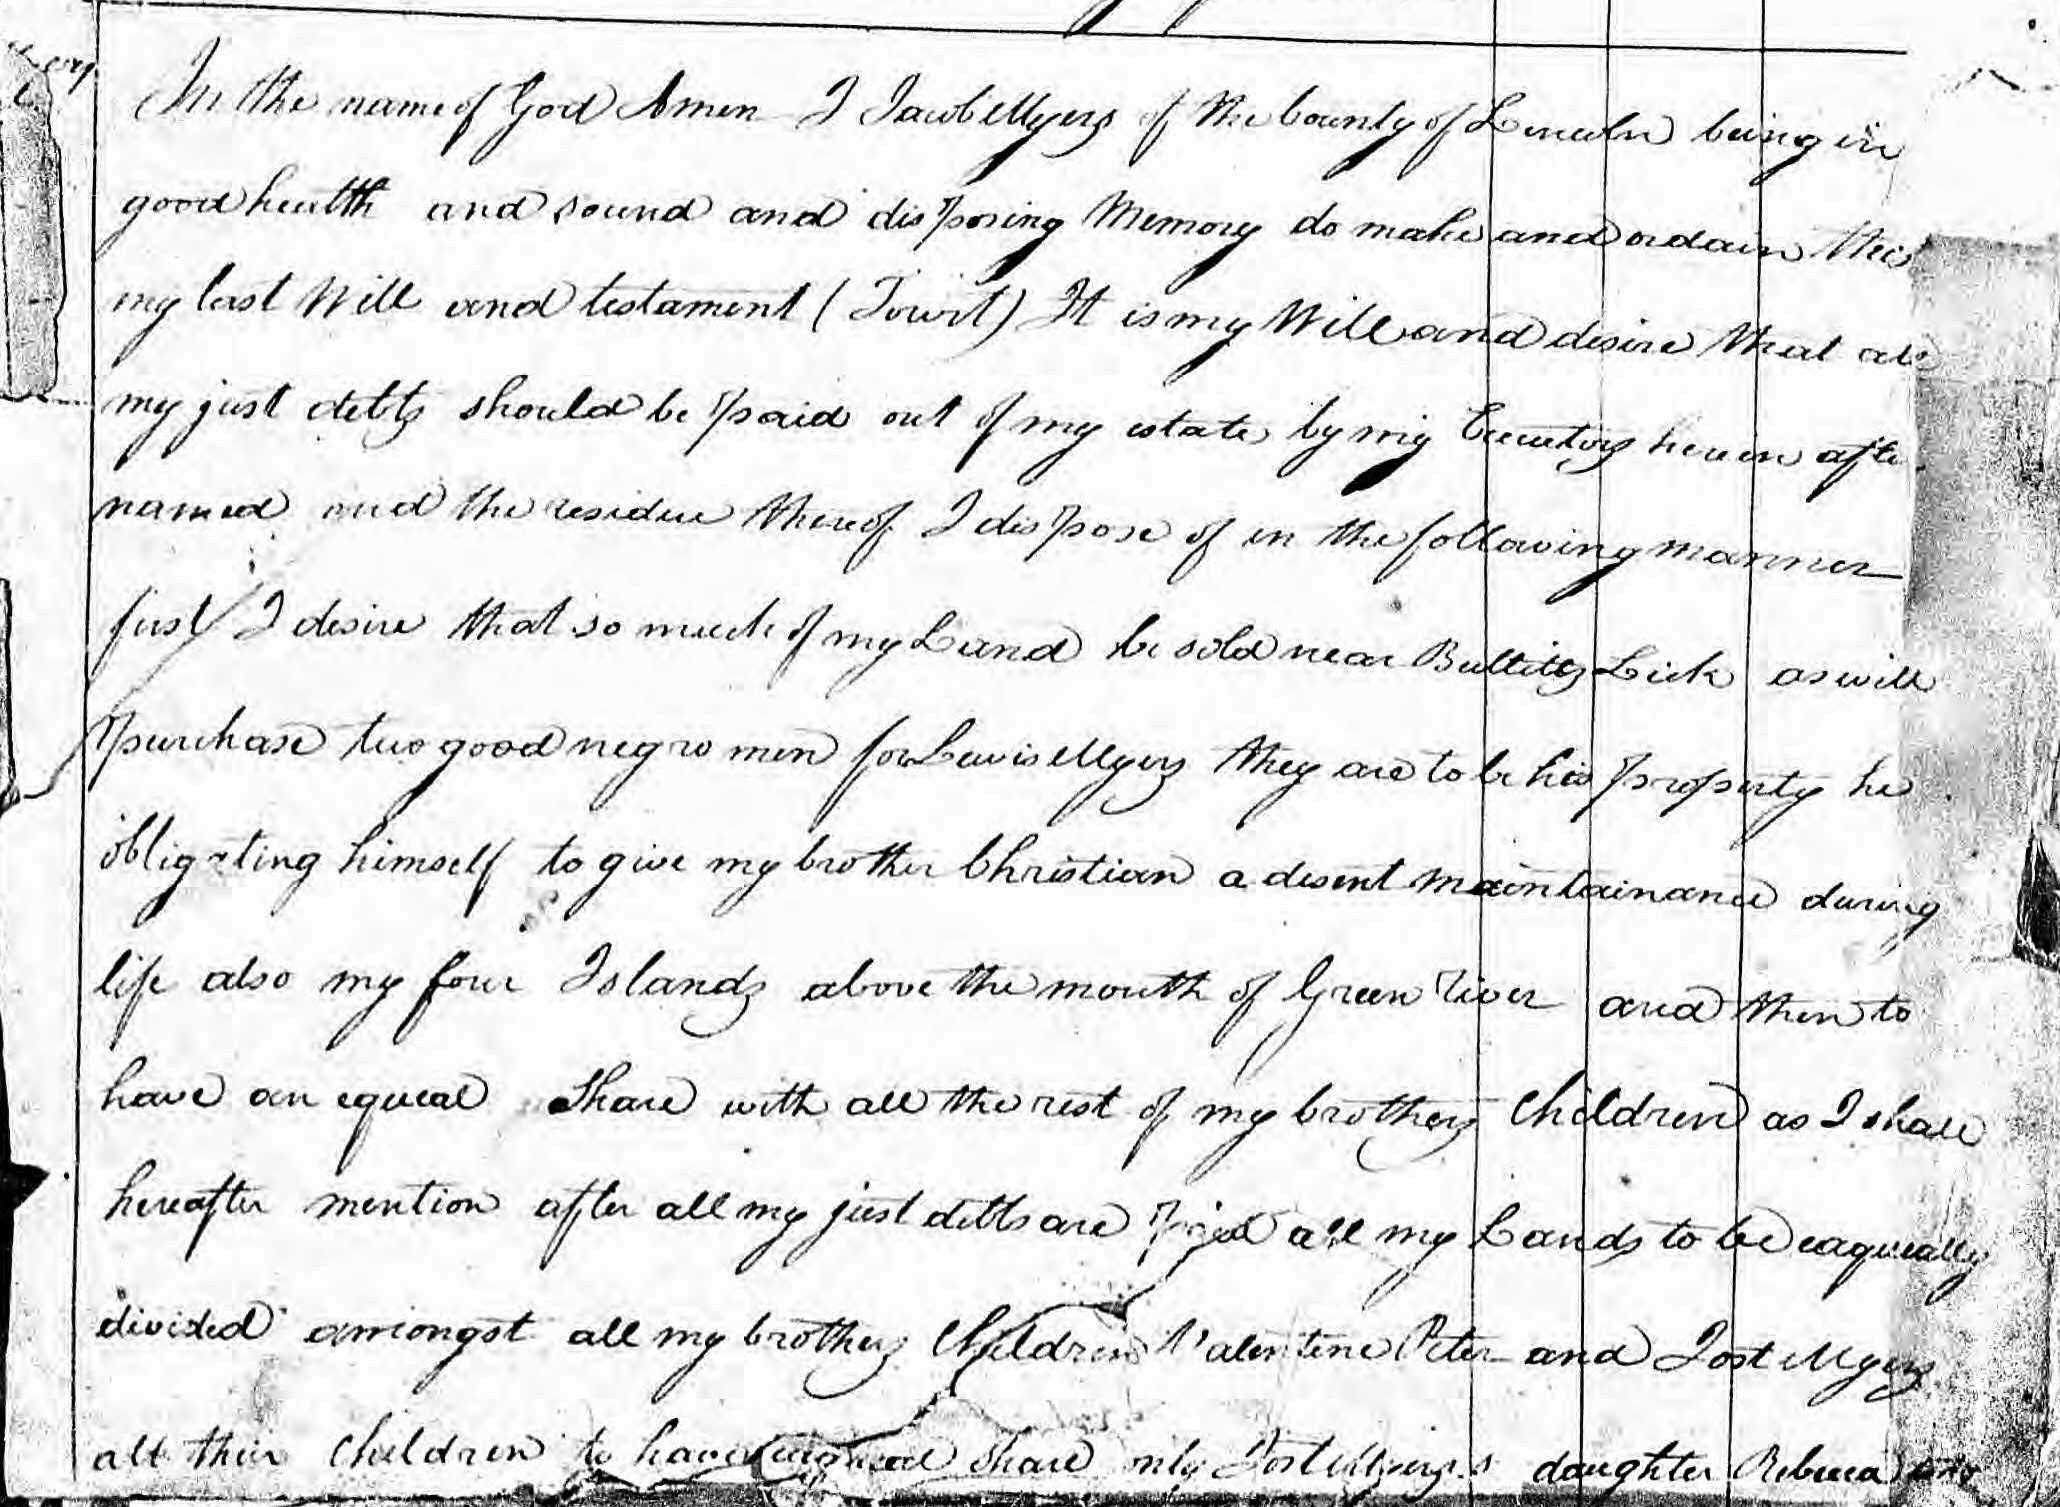 In the name of God Amen I Jacob Myers of the County of Lincoln being in
good health and sound and disposing Memory do make and ordain this
my last Will and testament (Towit) It is my Will and desire that all
my just debts should be paid out of my estate by my Executors herein after
named and the residue thereof I dispose of in the following manner
first I desire that so much of my Land be sold near Bullitts Lick as will
purchase two good negro men for Lewis Myers they are to be his property he
obligating himself to give my brother Christian a desent maintainance during
life also my four Islands above the mouth of Green River and then to
have an equeal Share with all the rest of my brothers Children as I shall
hereafter mention after all my just debts are paid all my Lands to be eaqueally
divided amiongst all my brothers Children Valentine Peter and Jost Myers
all thier Children to have share only Jost Myers's daughter Rebecca